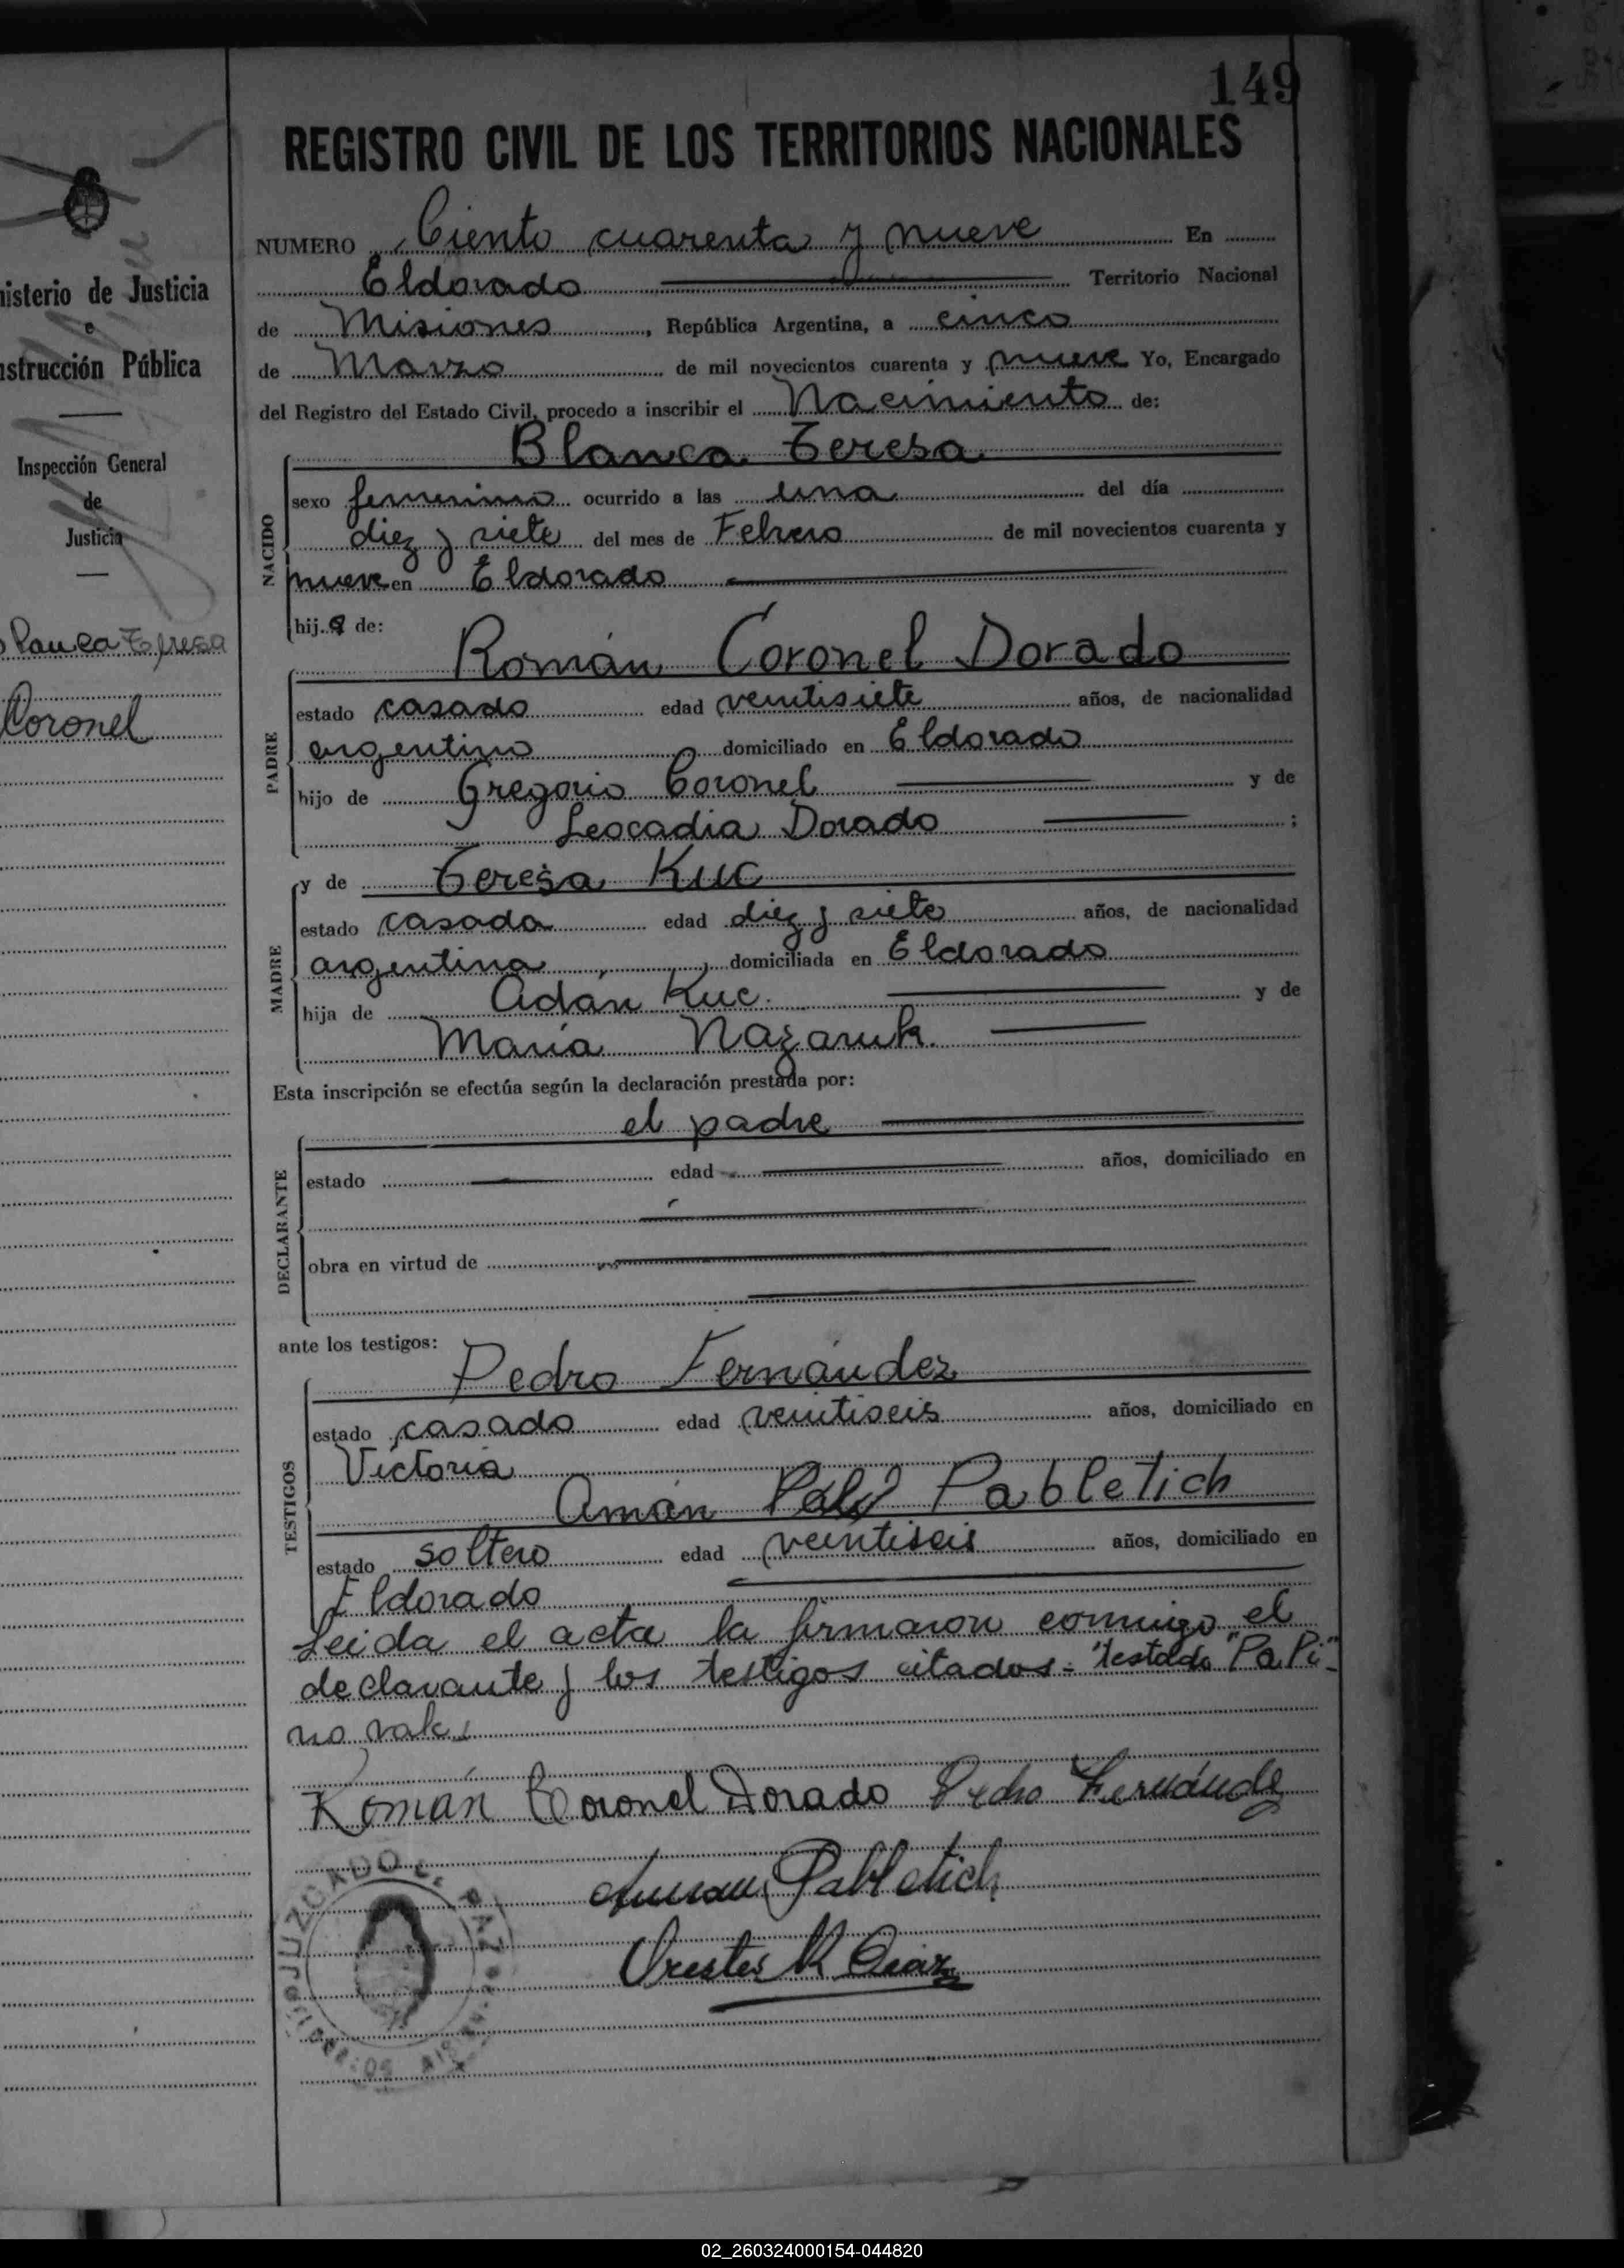 149
REGISTRO CIVIL DE LOS TERRITORIOS NACIONALES
NUMERO Ciento cuarenta y nueve En
Eldorado Territorio Nacional
de Misiones, República Argentina, a cinco
de Marzo de mil novecientos cuarenta y nueve Yo, Encargado
del Registro del Estado Civil, procedo a inscribir el Nacimiento de:
Blanca Teresa
NACIDO
sexo femenino ocurrido a las una del día
diez y siete del mes de Febrero de mil novecientos cuarenta y
nueve en Eldorado
hija de:
Román Coronel Dorado
PADRE
estado casado edad veintisiete años, de nacionalidad
argentino domiciliado en Eldorado
hijo de Gregorio Coronel y de
Leocadia Dorado ;
MADRE
y de Teresa Kuc
estado casada edad diez y siete años, de nacionalidad
argentina, domiciliada en Eldorado
hija de Adán Kuc. y de
María Nazaruk.
Esta inscripción se efectúa según la declaración prestada por:
el padre
DECLARANTE
estado edad años, domiciliado en
obra en virtud de
ante los testigos:
Pedro Fernández
TESTIGOS
estado casado edad veintiseis años, domiciliado en
Victoria
Amán Pabletich
estado soltero edad veintiseis años, domiciliado en
Eldorado
Leida el acta la firmaron conmigo el
declarante y los testigos citados - testado "Pa Pi"-
no vale
Román Coronel Dorado Pedro Fernández
Aman Pabletich
Orestes R Diaz
JUZGADO DE PAZ
nisterio de Justicia
e
nstrucción Pública
Inspección General
de
Justicia
Blanca Teresa
Coronel
02_260324000154-044820